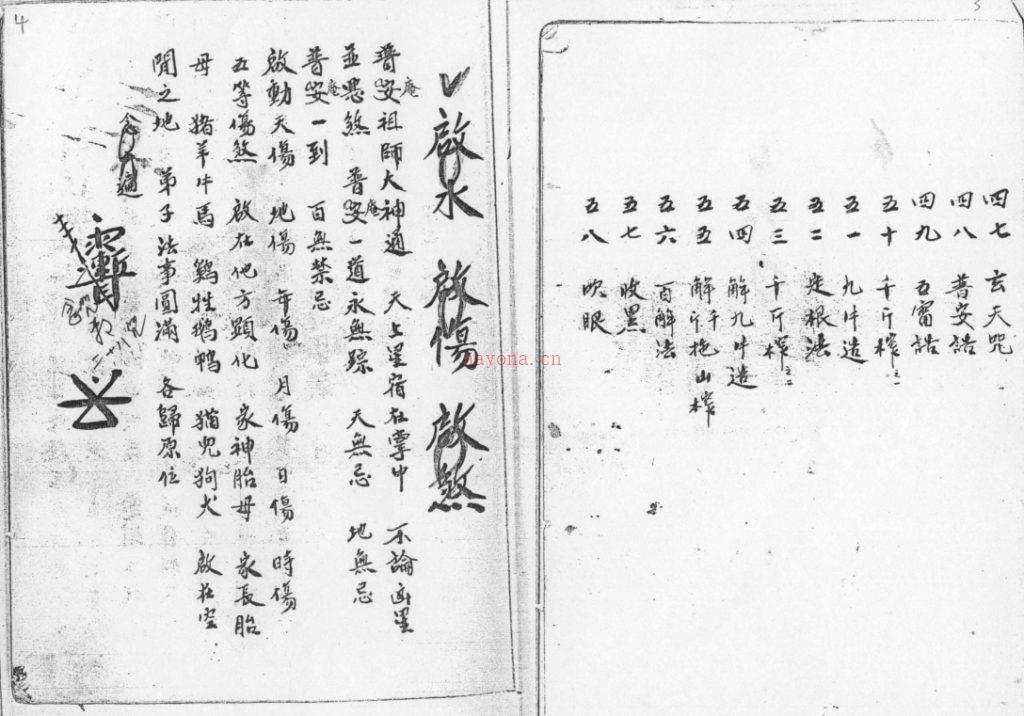 5
四七 玄天咒
四八 普安誥
四九 五雷誥
五十 千斤榨之一
五一 九牛造
五二 定根法
五三 千斤榨之二
五四 解九牛造
五五 解千斤拖山榨
五六 百解法
五七 收黑
五八 吹眼
4
啟水 啟傷 啟煞
普安庵祖師大神通 天上星宿在掌中 不論凶星
並惡煞 普安庵一道永無踪 天無忌 地無忌
普安庵一到 百無禁忌
啟動天傷 地傷 年傷 月傷 日傷 時傷
五等傷煞 啟在他方顯化 家神胎母 家長胎
母 猪羊牛馬 鷄牲鹅鸭 猫兒狗犬 啟在空
閒之地 弟子法事圓滿 各歸原位
nayona.cn